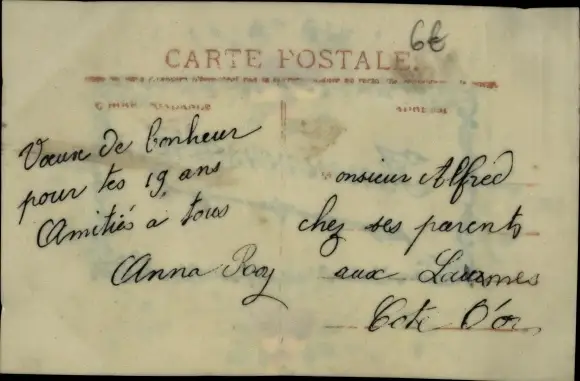 6€
CARTE POSTALE.
CORRESPONDANCE
ADRESSE
Vœux de bonheur
pour tes 19 ans
Amitiés à tous
Anna Roy
onsieur Alfred
chez ses parents
aux Laumes
Cote D'or